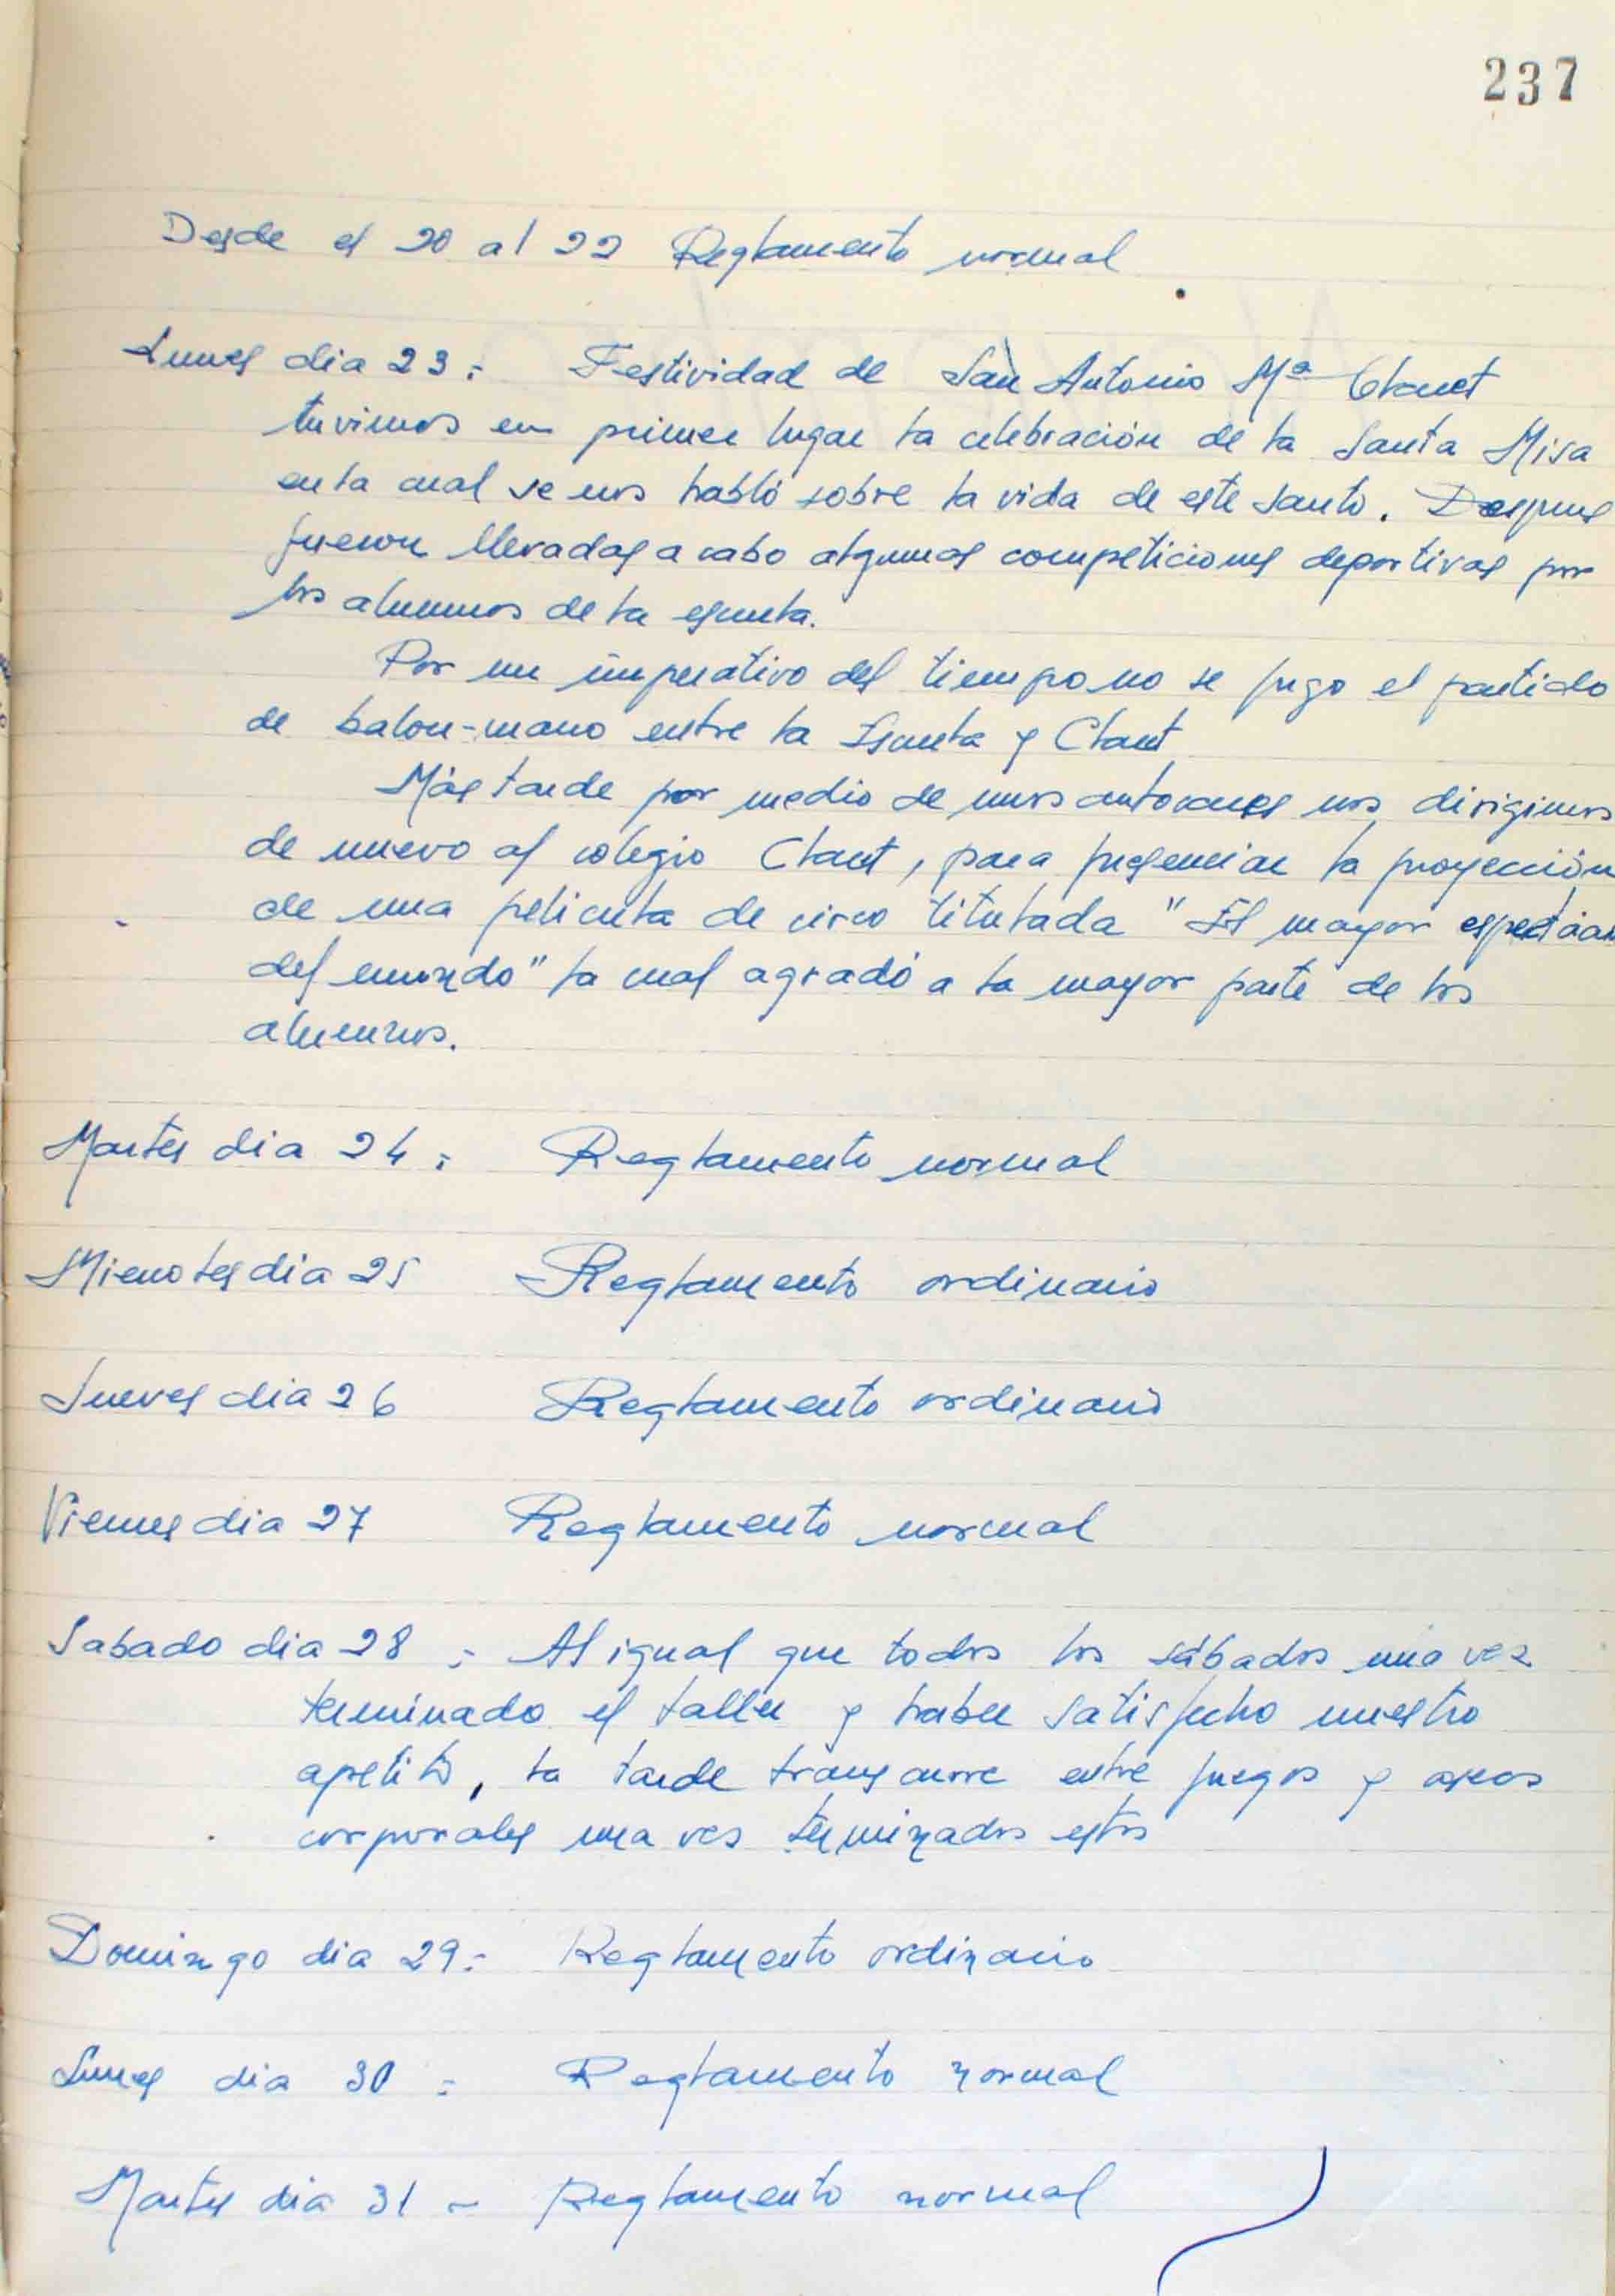 237
Desde el 20 al 22 Reglamento normal
Lunes dia 23:- Festividad de San Antonio Mª Claret
tuvimos en primer lugar la celebración de la Santa Misa
en la cual se nos habló sobre la vida de este santo. Despues
fueron llevadas a cabo algunas competiciones deportivas por
los alumnos de la escuela.
Por un imperativo del tiempo no se jugo el partido
de balon-mano entre la Escuela y Claret
Más tarde por medio de unos autocares nos dirigimos
de nuevo al colegio Claret, para presenciar la proyección
de una pelicula de circo titulada "El mayor
del mundo" la cual agradó a la mayor parte de los
alumnos.
Martes dia 24:- Reglamento normal
Miercoles dia 25 Reglamento ordinario
Jueves dia 26 Reglamento ordinario
Viernes dia 27 Reglamento normal
Sabado dia 28 :- Al igual que todos los sábados una vez
terminado el taller y haber satisfecho nuestro
apetito, la tarde transcurre entre juegos y aseos
corporales una ves terminados estos
Domingo dia 29:- Reglamento ordinario
Lunes dia 30 :- Reglamento normal
Martes dia 31 - Reglamento normal